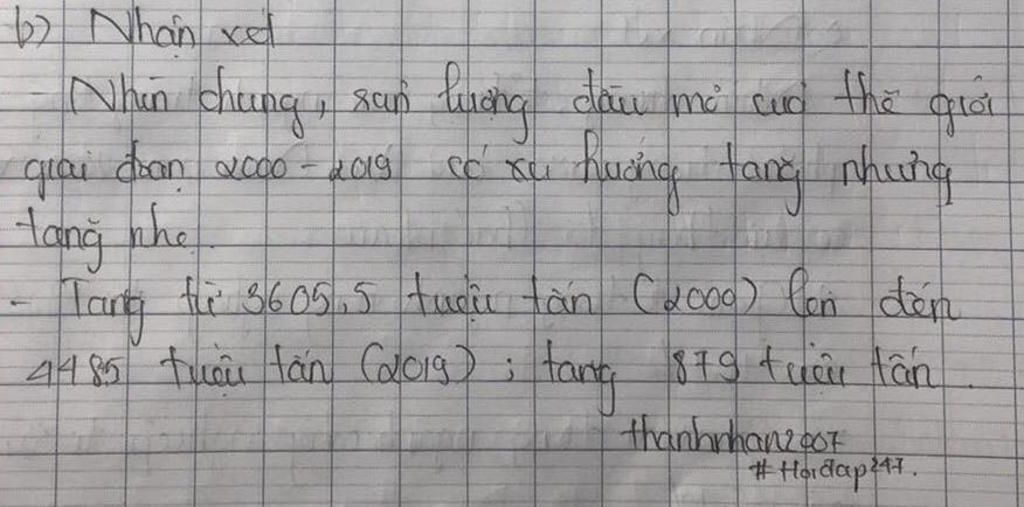 b) Nhận xét
- Nhìn chung, sản lượng dầu mỏ của thế giới
giai đoạn 2000 - 2019 có xu hướng tăng nhưng
tăng nhẹ.
- Tăng từ 3605,5 triệu tấn (2000) lên đến
4485 triệu tấn (2019) ; tăng 879 triệu tấn.
thanhnhan2007
# Hoidap247.